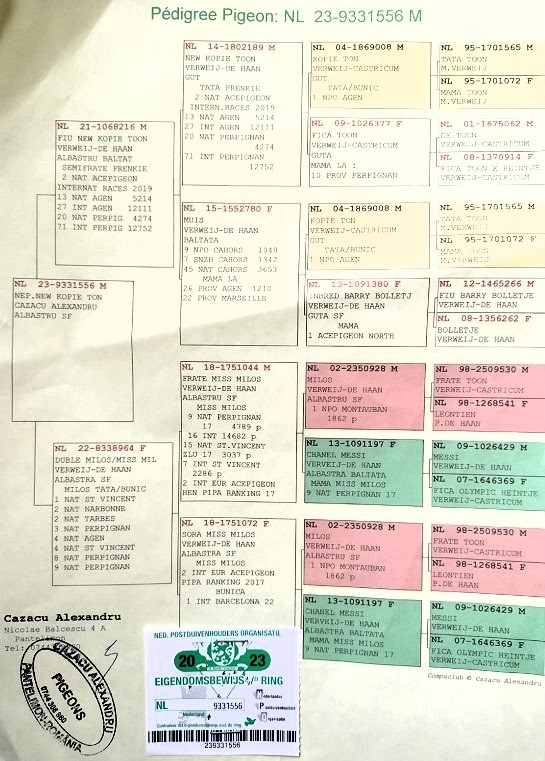 Pédigree Pigeon: NL 23-9331556 M
NL 14-1802189 M
NEW KOPIE TOON
VERWEIJ-DE HAAN
GUT
TATA FRENKIE
2 NAT ACEPIGEON
INTERN.RACES 2019
13 NAT AGEN 5214
27 INT AGEN 12111
20 NAT PERPIGNAN
4274
71 INT PERPIGNAN
12752
NL 04-1869008 M
KOPIE TON
VERWEIJ-CASTRICUM
GUT
TATA/BUNIC
1 NPO AGEN
NL 95-1701565 M
TATA TOON
M.VERWEIJ
NL 95-1701072 F
MAMA TOON
M.VERWEIJ
NL 09-1026377 F
FICA TOON
VERWEIJ-CASTRICUM
GUTA
MAMA LA :
10 PROV PERPIGNAN
NL 01-1675062 M
DE TOON
VERWEIJ-CASTRICUM
NL 08-1370914 F
FICA TOON X REINTJE
VERWEIJ-CASTRICUM
NL 21-1068216 M
FIU NEW KOPIE TOON
VERWEIJ-DE HAAN
ALBASTRU BALTAT
SEMIFRATE FRENKIE
2 NAT ACEPIGEON
INTERNAT RACES 2019
13 NAT AGEN 5214
27 INT AGEN 12111
20 NAT PERPIG 4274
71 INT PERPIG 12752
NL 15-1552780 F
MUIS
VERWEIJ-DE HAAN
BALTATA
9 NPO CAHORS 1048
7 SNZH CAHORS 1342
45 NAT CAHORS 3653
MAMA LA
26 PROV AGEN 1210
22 PROV MARSEILLE
NL 04-1869008 M
KOPIE TON
VERWEIJ-CASTRICUM
GUT
TATA/BUNIC
1 NPO AGEN
NL 95-1701565 M
TATA TOON
M.VERWEIJ
NL 95-1701072 F
MAMA TOON
M.VERWEIJ
NL 13-1091380 F
INBRED BARRY BOLLETJ
VERWEIJ-DE HAAN
GUTA SF
MAMA
1 ACEPIGEON NORTH
NL 12-1465266 M
FIU BARRY BOLLETJE
VERWEIJ-DE HAAN
NL 08-1356262 F
BOLLETJE
VERWEIJ-DE HAAN
NL 23-9331556 M
NEP.NEW KOPIE TON
CAZACU ALEXANDRU
ALBASTRU SF
NL 18-1751044 M
FRATE MISS MILOS
VERWEIJ-DE HAAN
ALBASTRU SF
MISS MILOS
9 NAT PERPIGNAN
17 4789 p
16 INT 14682 p
15 NAT ST.VINCENT
ZLU 17 3037 p
7 INT ST VINCENT
2286 p
2 INT EUR ACEPIGEON
HEN PIPA RANKING 17
NL 02-2350928 M
MILOS
VERWEIJ-DE HAAN
ALBASTRU SF
1 NPO MONTAUBAN
1862 p
NL 98-2509530 M
FRATE TOON
VERWEIJ-CASTRICUM
NL 98-1268541 F
LEONTIEN
P.DE HAAN
NL 13-1091197 F
CHANEL MESSI
VERVEIJ-DE HAAN
ALBASTRA BALTATA
MAMA MISS MILOS
9 NAT PERPIGNAN 17
NL 09-1026429 M
MESSI
VERWEIJ-DE HAAN
NL 07-1646369 F
FICA OLYMPIC HEINTJE
VERWEIJ-CASTRICUM
NL 22-8338964 F
DUBLE MILOS/MISS MIL
VERWEIJ-DE HAAN
ALBASTRA SF
MILOS TATA/BUNIC
1 NAT ST VINCENT
2 NAT NARBONNE
2 NAT TARBES
3 NAT PERPIGNAN
4 NAT AGEN
4 NAT ST VINCENT
8 NAT PERPIGNAN
9 NAT PERPIGNAN
NL 18-1751072 F
SORA MISS MILOS
VERWEIJ-DE HAAN
ALBASTRA SF
MISS MILOS
2 INT EUR ACEPIGEON
PIPA RANKING 2017
BUNICA
1 INT BARCELONA 22
NL 02-2350928 M
MILOS
VERWEIJ-DE HAAN
ALBASTRU SF
1 NPO MONTAUBAN
1862 p
NL 98-2509530 M
FRATE TOON
VERWEIJ-CASTRICUM
NL 98-1268541 F
LEONTIEN
P.DE HAAN
NL 13-1091197 F
CHANEL MESSI
VERWEIJ-DE HAAN
ALBASTRA BALTATA
MAMA MISS MILOS
9 NAT PERPIGNAN 17
NL 09-1026429 M
MESSI
VERWEIJ-DE HAAN
NL 07-1646369 F
FICA OLYMPIC HEINTJE
VERWEIJ-CASTRICUM
Compuclub © Cazacu Alexandru
Cazacu Alexandru
Nicolae Balcescu 4 A
Pantelimon
Tel:
CAZACU ALEXANDRU
PIGEONS
PANTELIMON-ROMANIA
NED. POSTDUIVENHOUDERS ORGANISATIE
20 23
EIGENDOMSBEWIJS v/d RING
NL 9331556
Nederland
Nederlandse
Postduivenhouders
Organisatie
239331556